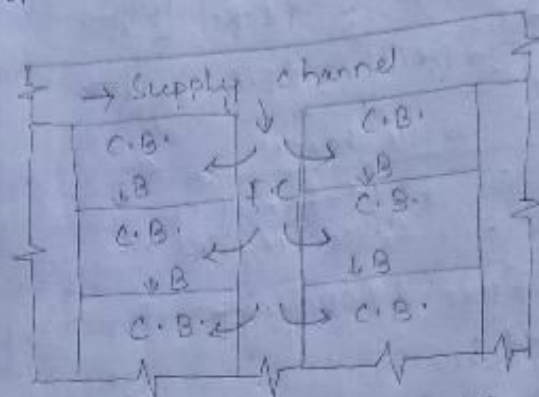 → Supply channel
C.B. C.B.
↓B F.C ↓B
C.B. C.B.
↓B ↓B
C.B. C.B.